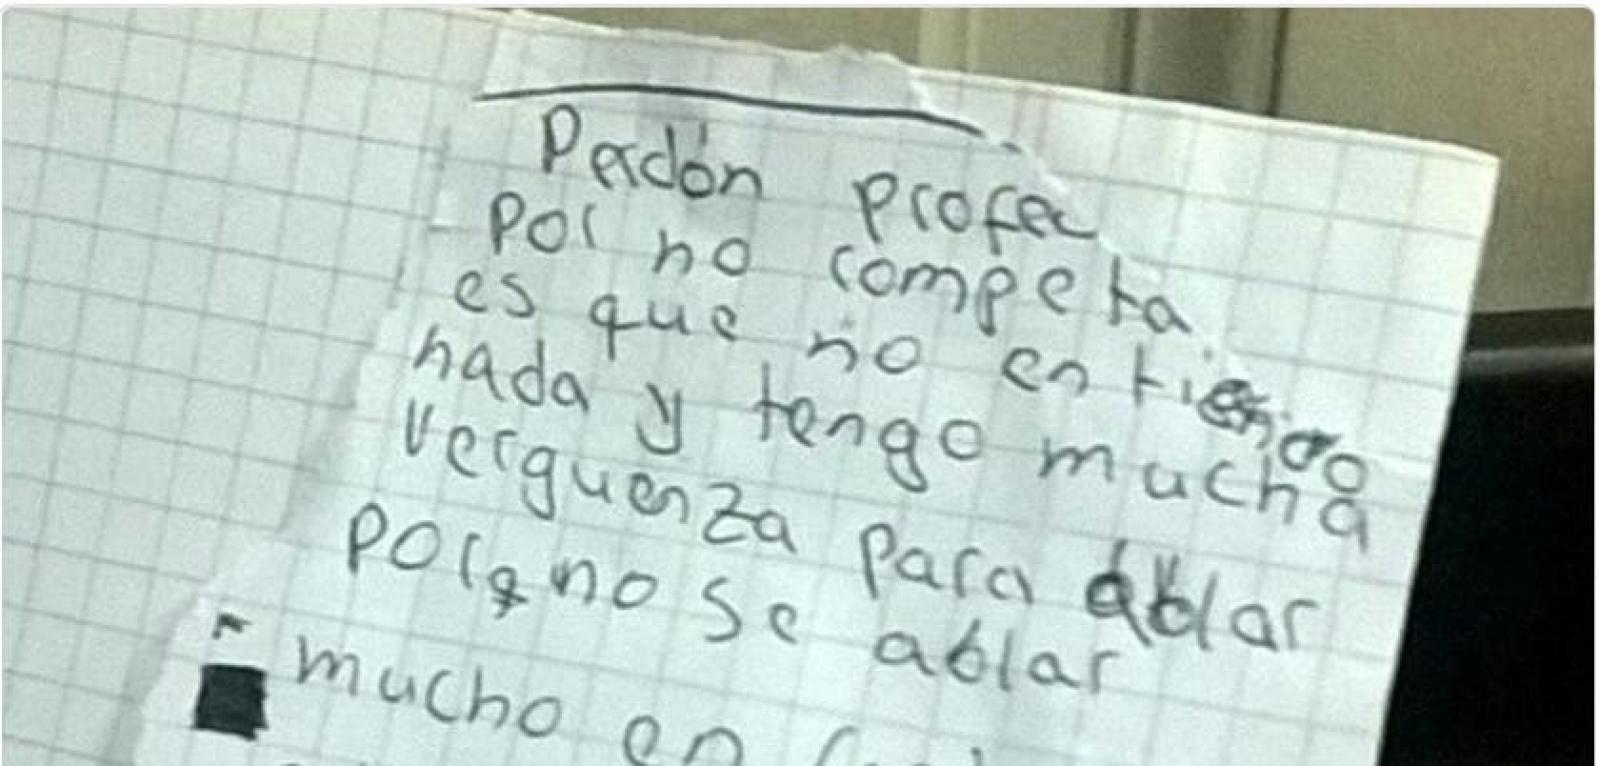 Perdón profe
por no competa
es que no entiendo
nada y tengo mucha
verguenza para ablar
porq no se ablar
mucho en